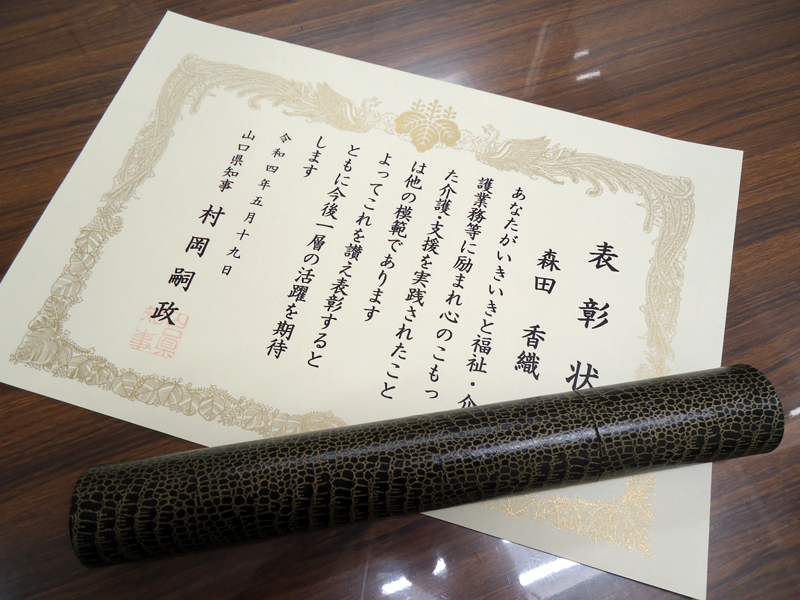 表彰状
森田 香織
あなたがいきいきと福祉・介
護業務等に励まれ心のこもっ
た介護・支援を実践されたこと
は他の模範であります
よってこれを讃え表彰すると
ともに今後一層の活躍を期待
します
令和四年五月十九日
山口県知事 村岡嗣政